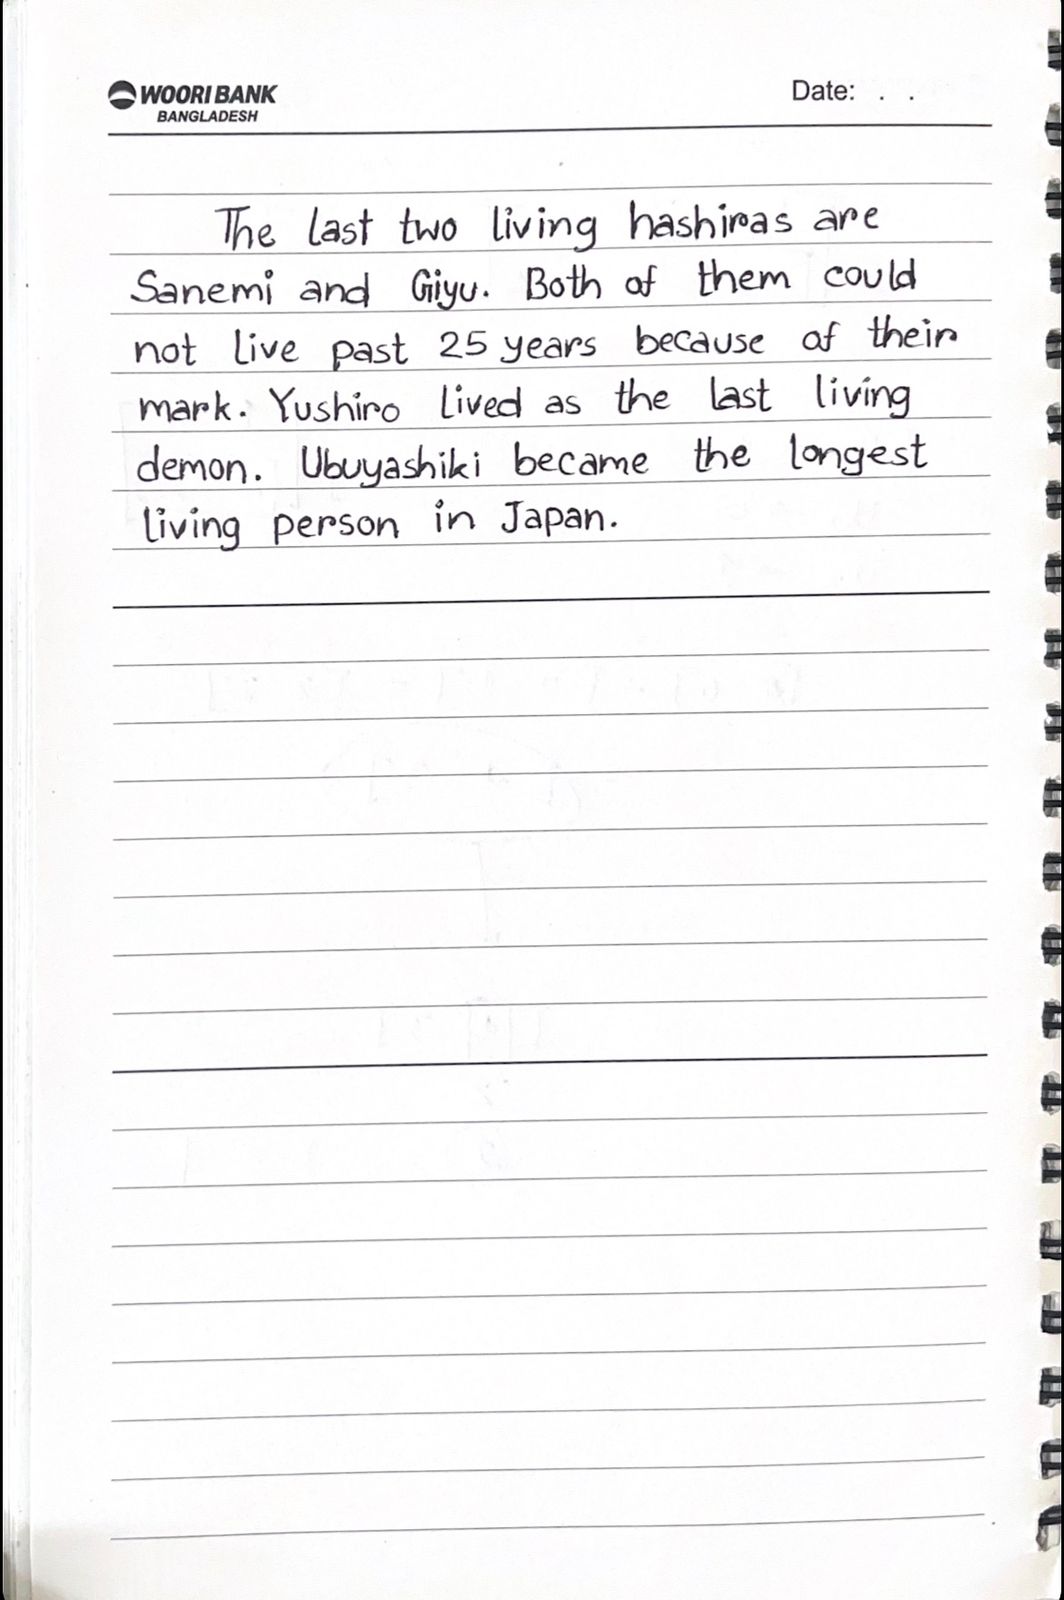 WOORI BANK
BANGLADESH
Date: . .
The last two living hashiras are
Sanemi and Giyu. Both of them could
not live past 25 years because of their
mark. Yushiro lived as the last living
demon. Ubuyashiki became the longest
living person in Japan.